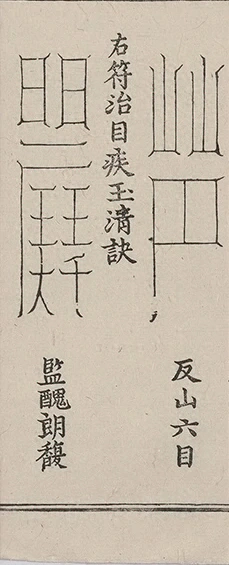 反山六目
右符治目疾玉清訣
監醜朗馥